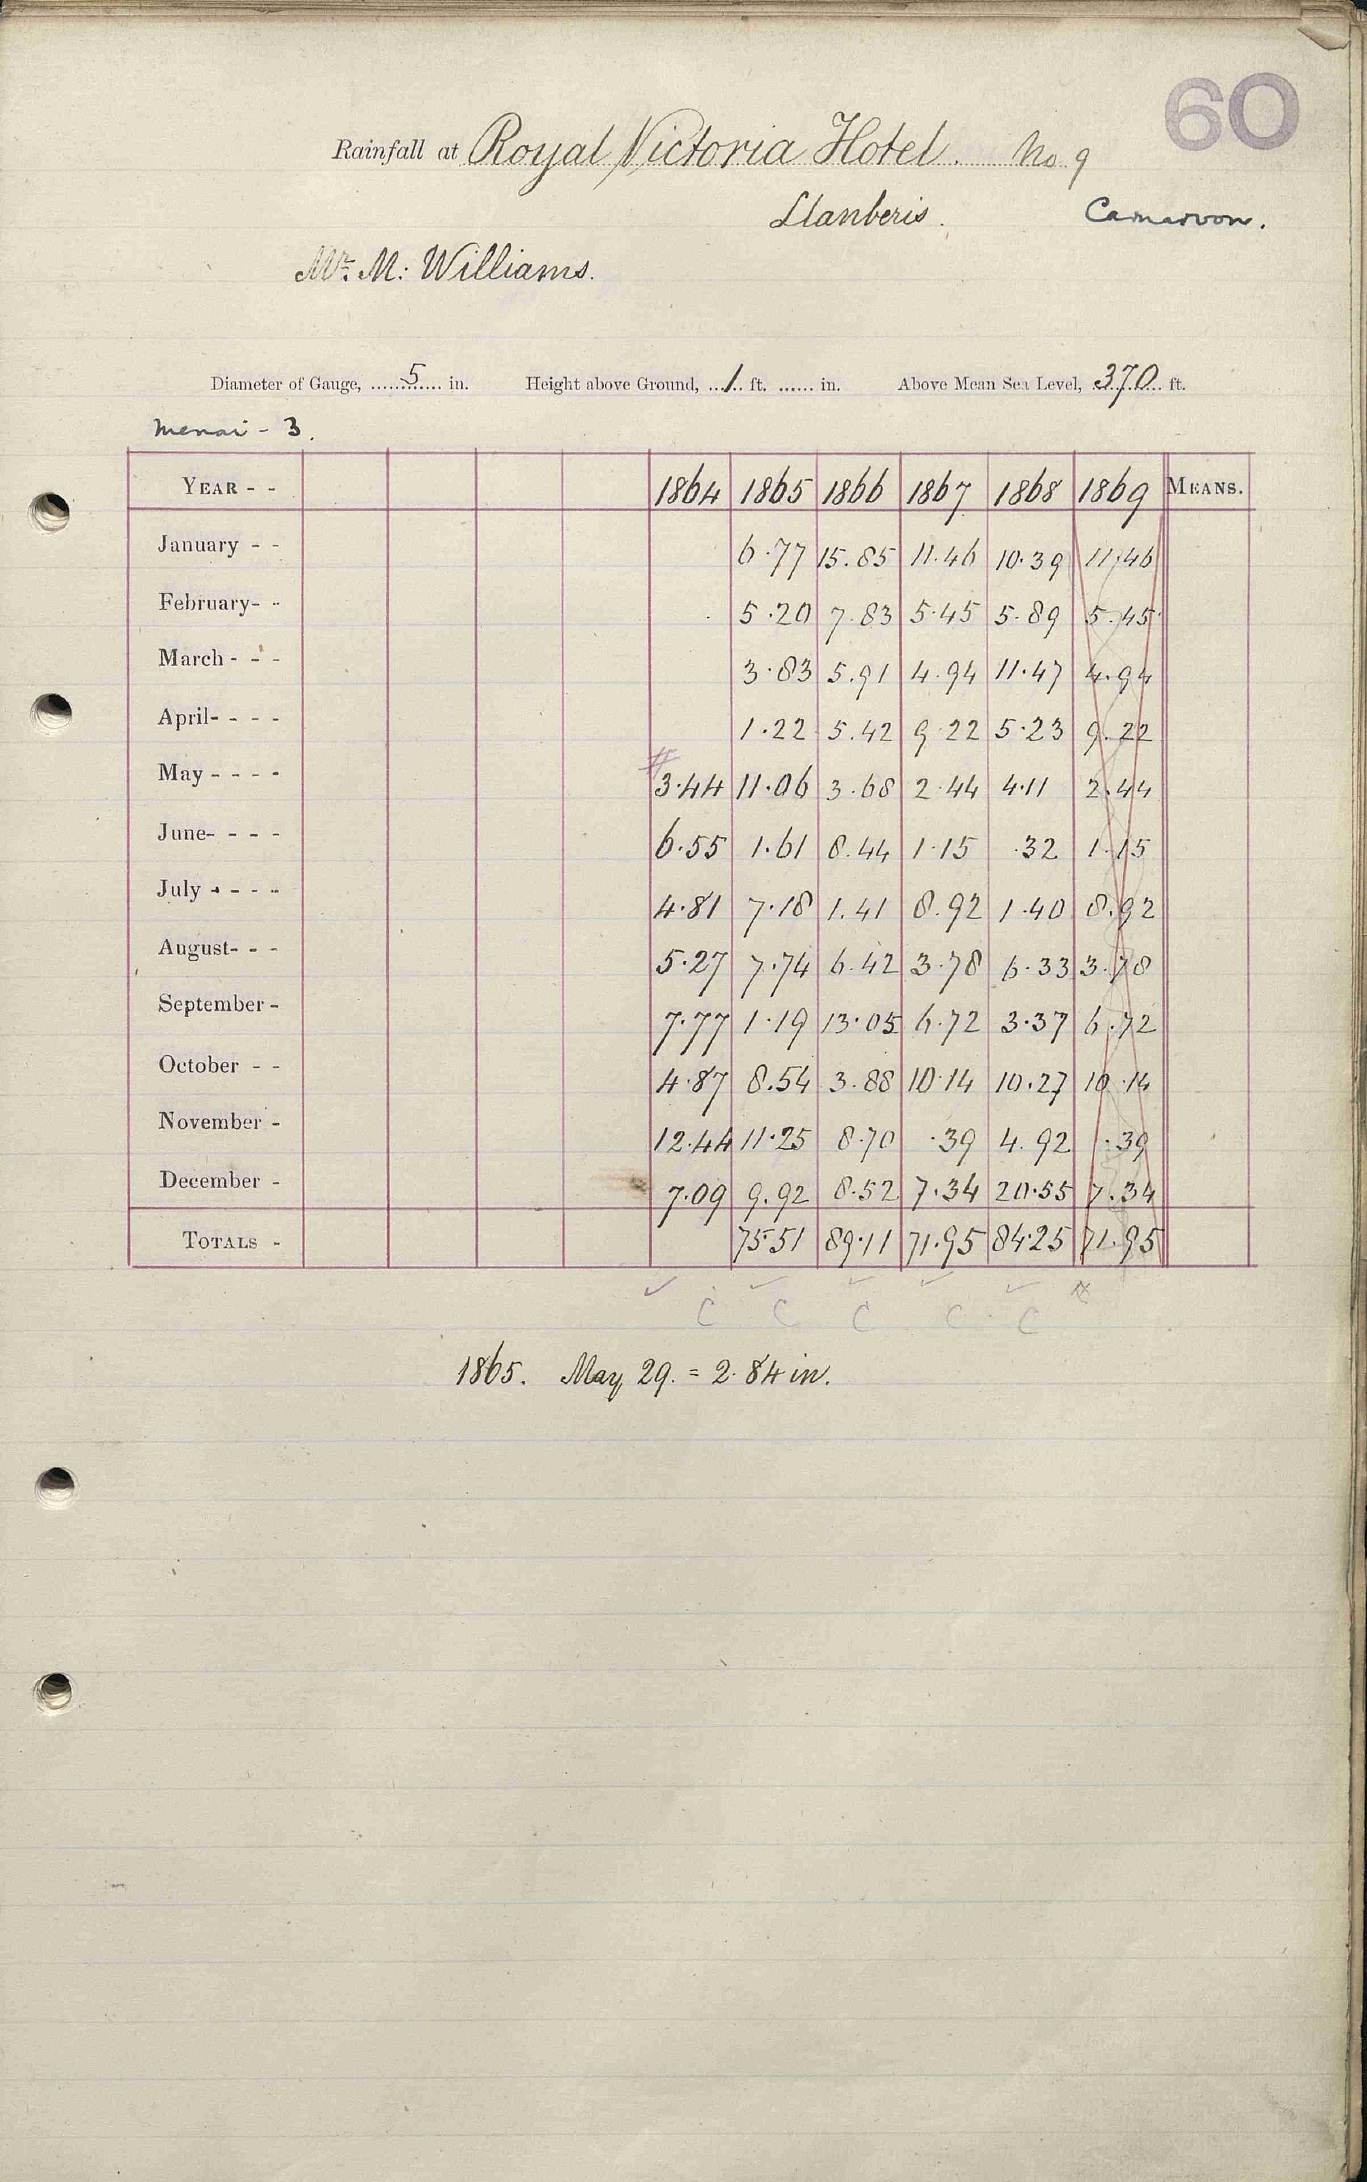 60
Rainfall at Royal Victoria Hotel. No. 9
Llanberis. Carnarvon.
Mr. M: Williams.
Diameter of Gauge, 5 in. Height above Ground, 1 ft. in. Above Mean Sea Level, 370 ft.
Menai - 3.
YEAR - - 1864 1865 1866 1867 1868 1869 MEANS.
January - - 6.77 15.85 11.46 10.39 11.46
February- - 5.20 7.83 5.45 5.89 5.45
March - - - 3.83 5.91 4.94 11.47 4.94
April- - - - 1.22 5.42 9.22 5.23 9.22
May - - - - # 3.44 11.06 3.68 2.44 4.11 2.44
June- - - - 6.55 1.61 8.44 1.15 .32 1.15
July - - - - 4.81 7.18 1.41 8.92 1.40 8.92
August- - - 5.27 7.74 6.42 3.78 6.33 3.78
September - 7.77 1.19 13.05 6.72 3.37 6.72
October - - 4.87 8.54 3.88 10.14 10.27 10.14
November - 12.44 11.25 8.70 .39 4.92 .39
December - 7.09 9.92 8.52 7.34 20.55 7.34
TOTALS - 75.51 89.11 71.95 84.25 71.95
C C C C C
1865. May 29. = 2.84 in.